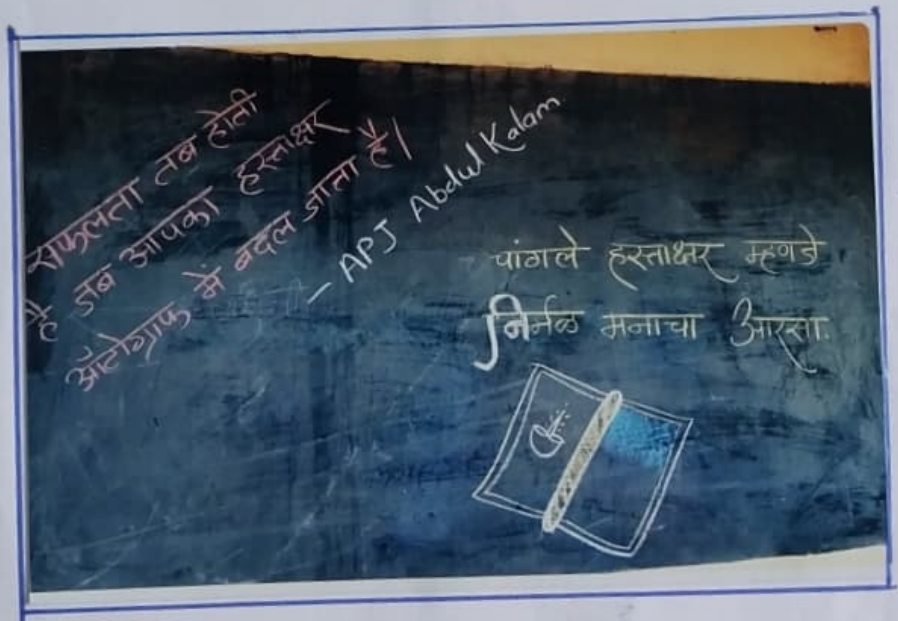 सफलता तब होती
है जब आपका हस्ताक्षर
ऑटोग्राफ में बदल जाता है।
- APJ Abdul Kalam
चांगले हस्ताक्षर म्हणजे
निर्मळ मनाचा आरसा.